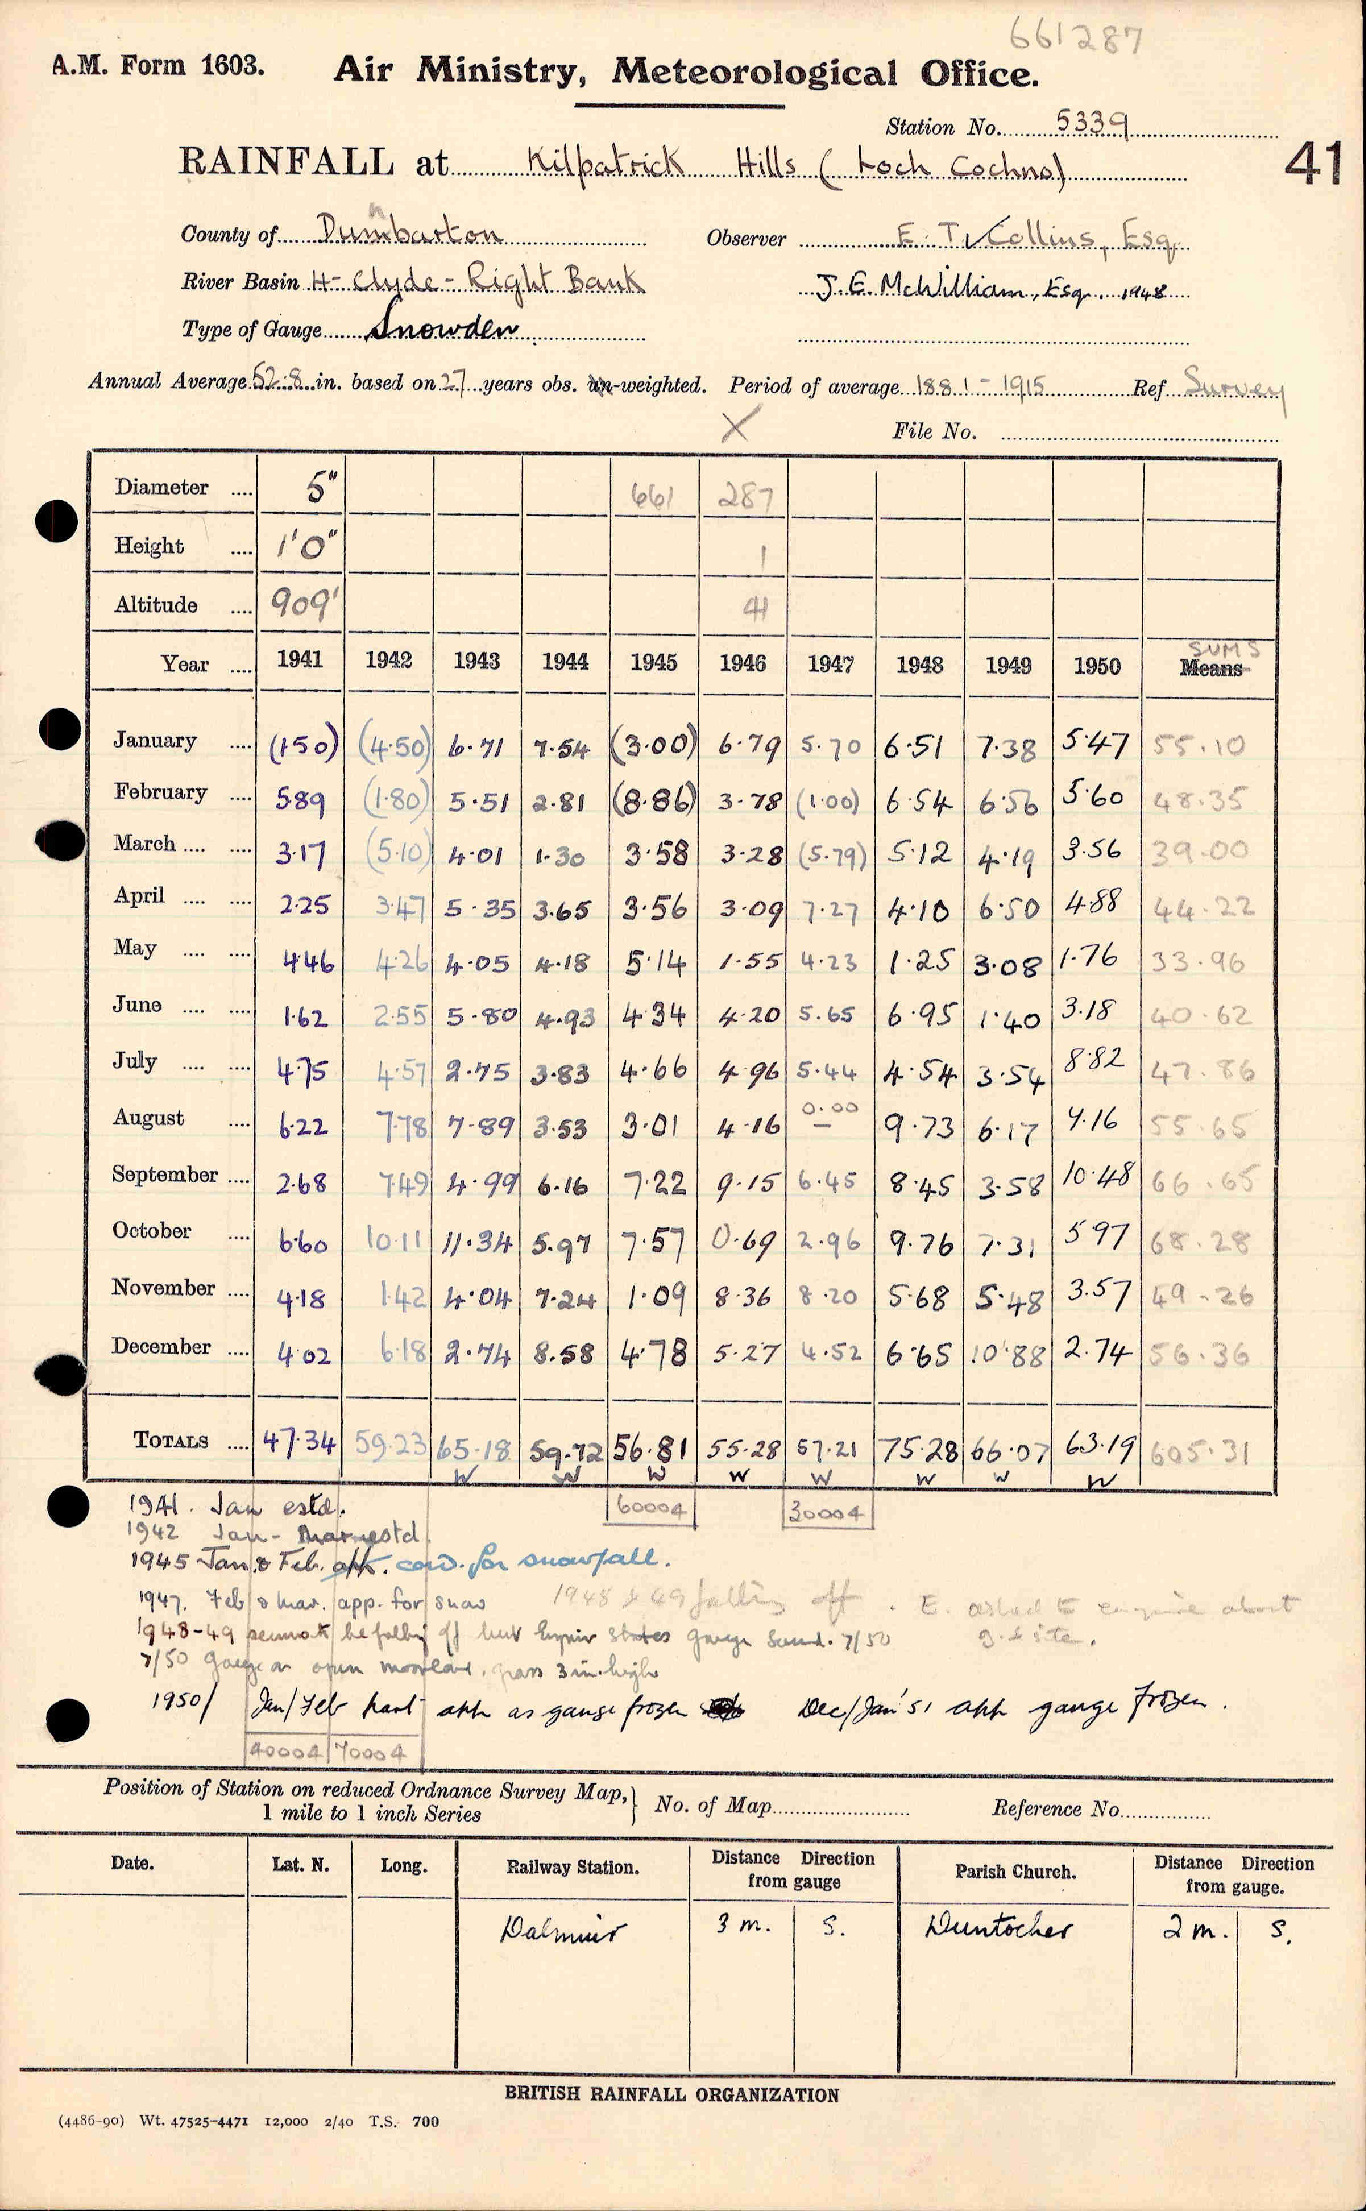 661287
A.M. Form 1603. Air Ministry, Meteorological Office.
Station No. 5339
RAINFALL at Kilpatrick Hills (Loch Cochno) 41
County of Dumbarton Observer E. T. Collins, Esq.
River Basin H- Clyde - Right Bank J. E. McWilliam, Esq. 1948
Type of Gauge Snowden
Annual Average 52.8 in. based on 27 years obs. un-weighted. Period of average 1881-1915 Ref. Survey
X File No.
Diameter .... 5" 661 287
Height .... 1'0" 1
Altitude .... 909' 41
SUMS
Year .... 1941 1942 1943 1944 1945 1946 1947 1948 1949 1950 Means
January .... (1.50) (4.50) 6.71 7.54 (3.00) 6.79 5.70 6.51 7.38 5.47 55.10
February .... 5.89 (1.80) 5.51 2.81 (8.86) 3.78 (1.00) 6.54 6.56 5.60 48.35
March .... .... 3.17 (5.10) 4.01 1.30 3.58 3.28 (5.79) 5.12 4.19 3.56 39.00
April .... .... 2.25 3.47 5.35 3.65 3.56 3.09 7.27 4.10 6.50 4.88 44.22
May .... .... 4.46 4.26 4.05 4.18 5.14 1.55 4.23 1.25 3.08 1.76 33.96
June .... .... 1.62 2.55 5.80 4.93 4.34 4.20 5.65 6.95 1.40 3.18 40.62
July .... .... 4.75 4.57 2.75 3.83 4.66 4.96 5.44 4.54 3.54 8.82 47.86
August .... 6.22 7.78 7.89 3.53 3.01 4.16 0.00 — 9.73 6.17 7.16 55.65
September .... 2.68 7.49 4.99 6.16 7.22 9.15 6.45 8.45 3.58 10.48 66.65
October .... 6.60 10.11 11.34 5.97 7.57 0.69 2.96 9.76 7.31 5.97 68.28
November .... 4.18 1.42 4.04 7.24 1.09 8.36 8.20 5.68 5.48 3.57 49.26
December .... 4.02 6.18 2.74 8.58 4.78 5.27 4.52 6.65 10.88 2.74 56.36
TOTALS .... 47.34 59.23 65.18 59.72 56.81 55.28 57.21 75.28 66.07 63.19 605.31
W W W W W W W W
1941. Jan estd. 60004 30004
1942 Jan - Mar estd.
1945 Jan & Feb. app. cord. for snowfall.
1947. Feb & Mar. app. for snow 1948 & 49 falling off. E. asked to enquire about
1948-49 falling off but states gauge sound. 7/50 g. & site.
7/50 Gauge on open moorland, grass 3 in. high
1950/ Jan/Feb part app as gauge frozen Dec/Jan '51 app gauge frozen.
40004 70004
Position of Station on reduced Ordnance Survey Map, 1 mile to 1 inch Series } No. of Map Reference No.
Date. Lat. N. Long. Railway Station. Distance Direction from gauge Parish Church. Distance Direction from gauge.
Dalmuir 3 m. S. Duntocher 2 m. S.
BRITISH RAINFALL ORGANIZATION
(4486-90) Wt. 47525-4471 12,000 2/40 T.S. 700